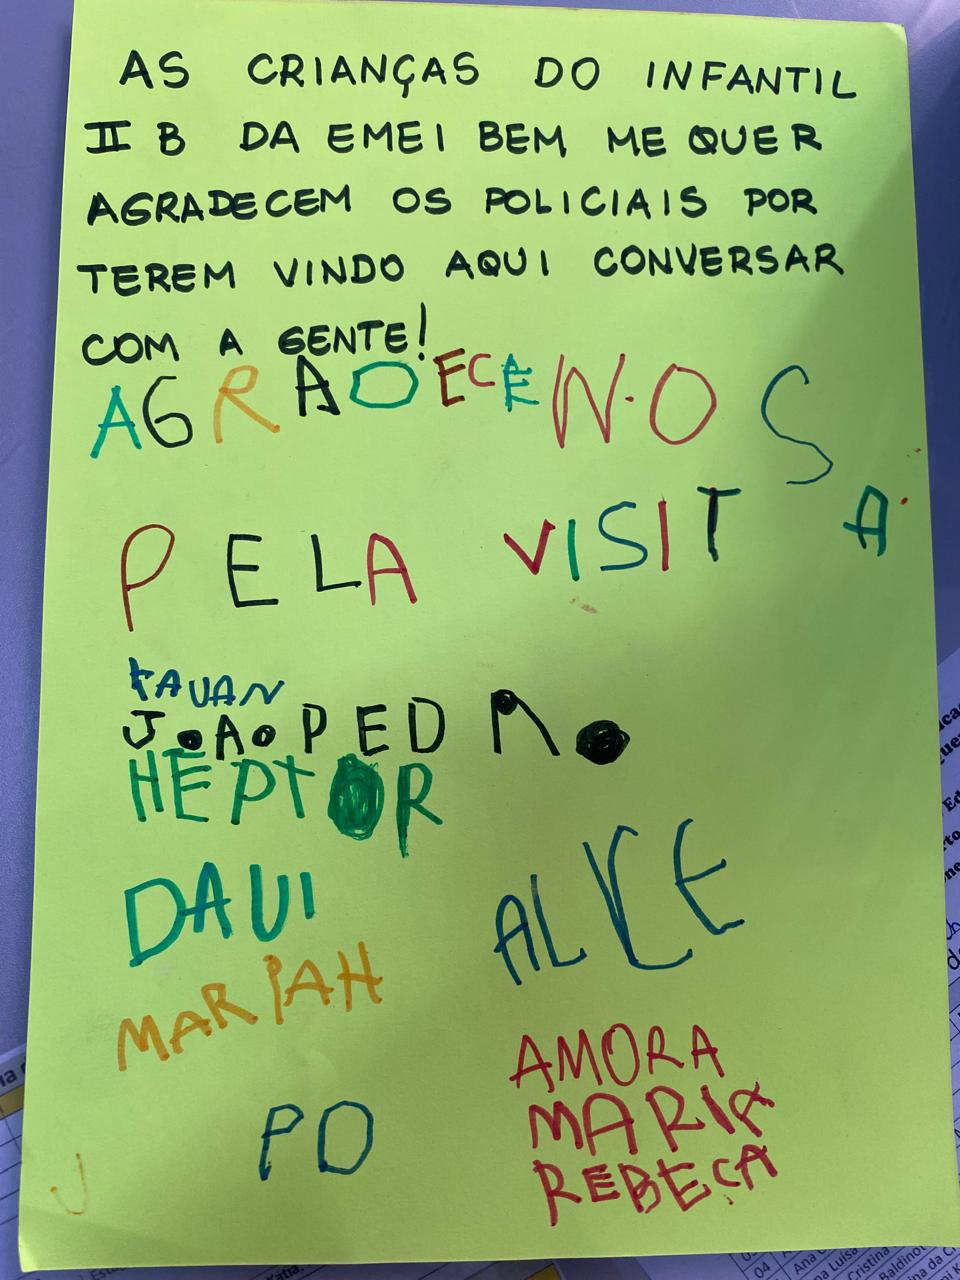 AS CRIANÇAS DO INFANTIL
II B DA EMEI BEM ME QUER
AGRADECEM OS POLICIAIS POR
TEREM VINDO AQUI CONVERSAR
COM A GENTE!
AGRADECEMOS
PELA VISITA
KAUAN
JOAO PEDRO
HEPTOR
DAUI
ALICE
MARIAH
AMORA
PO
MARIA
REBECA
J
04
Ana
Luísa
Cristina
Baldino